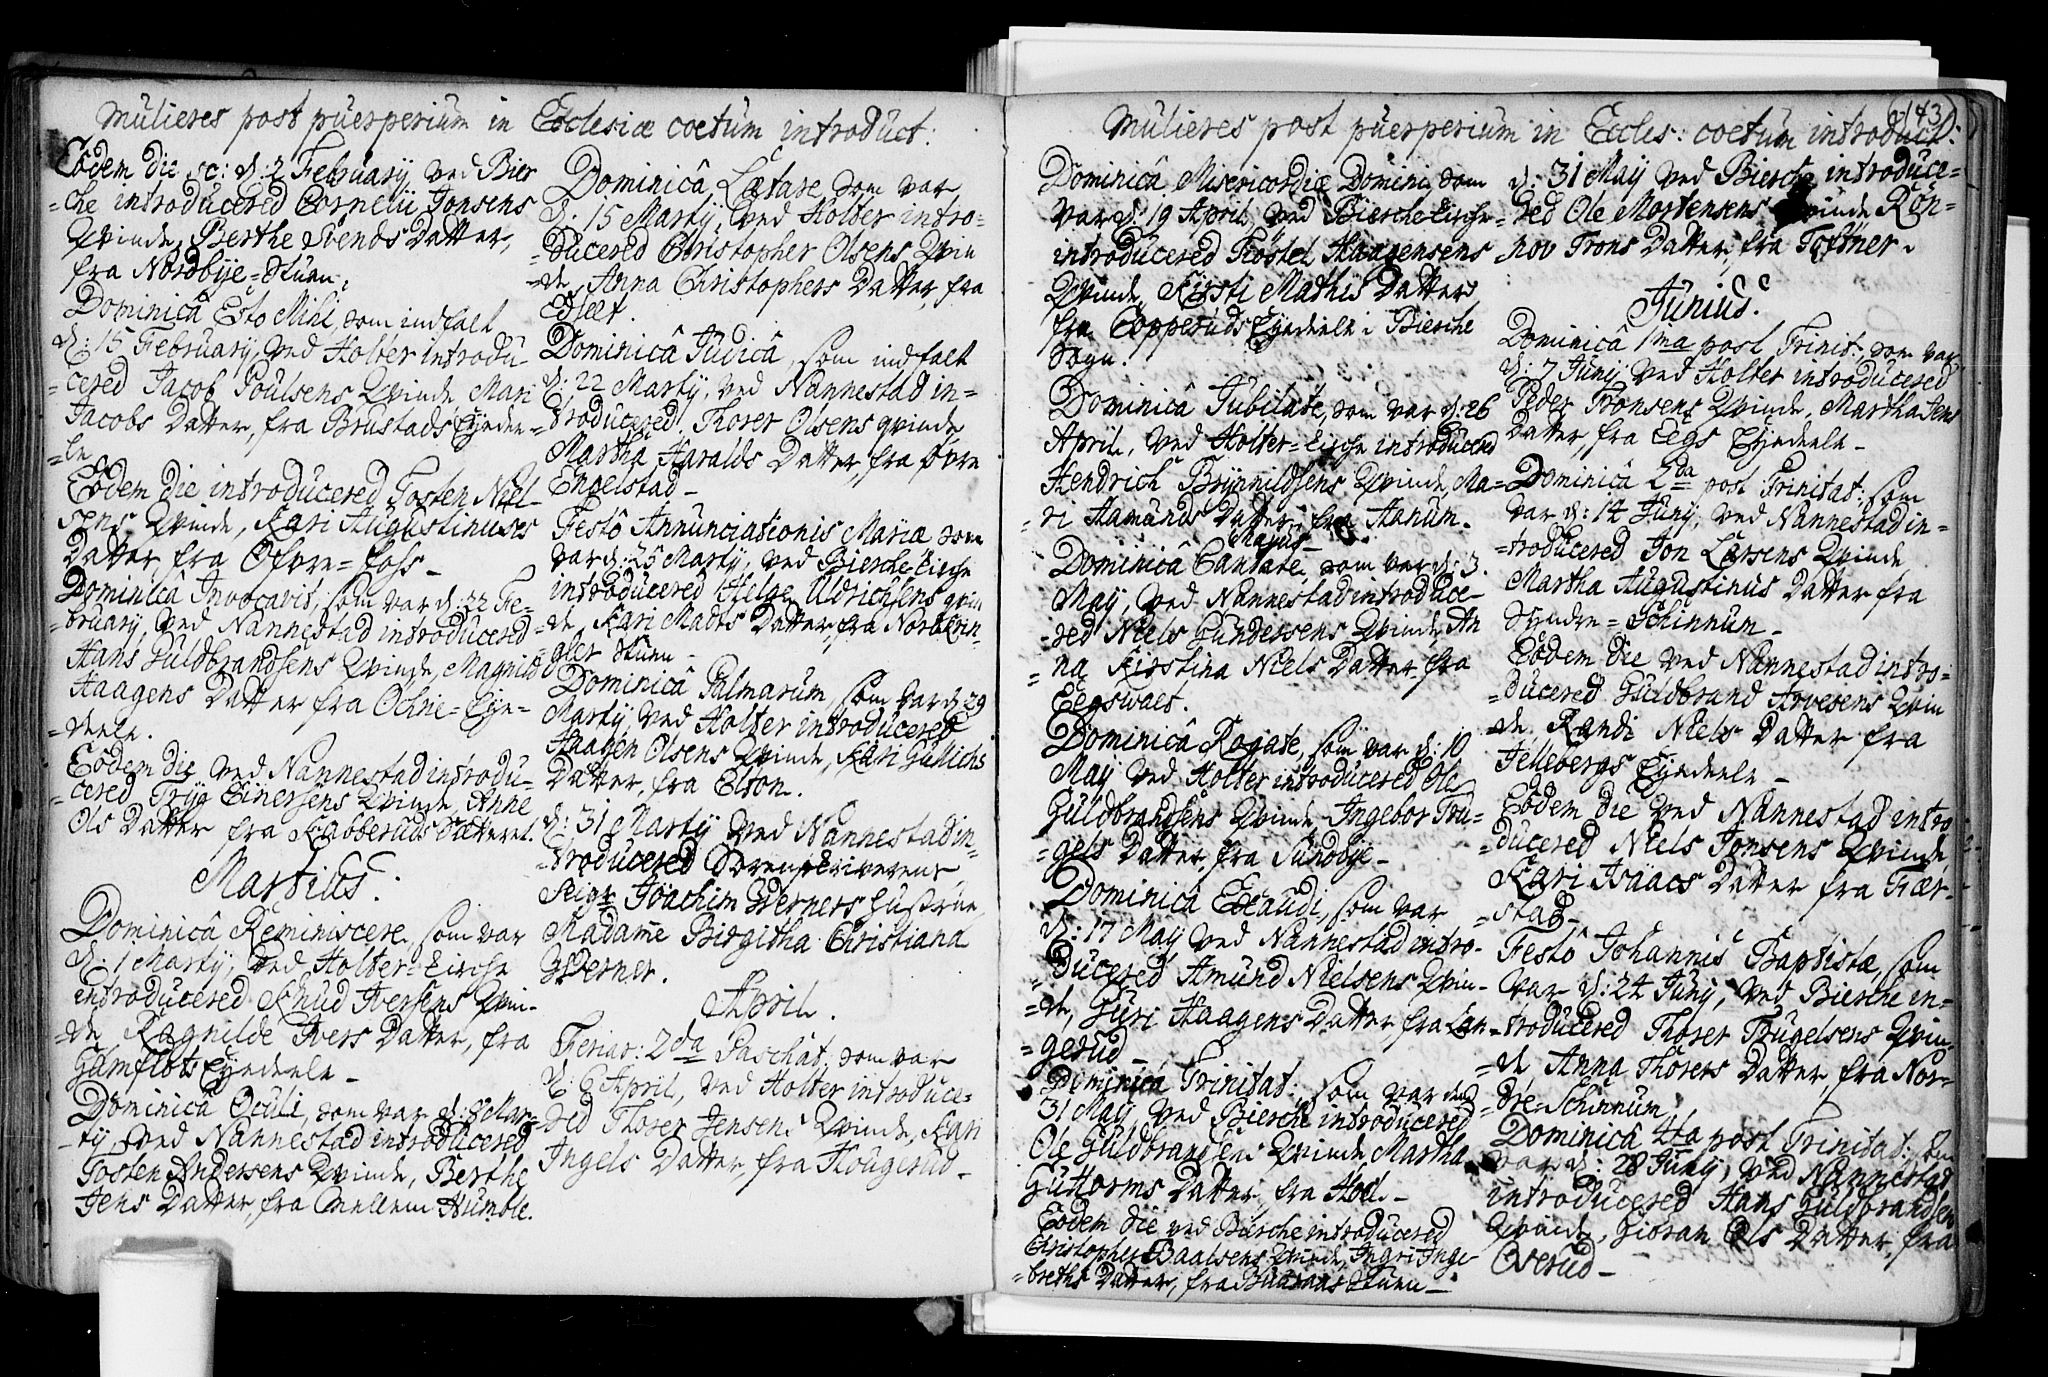 Mulieres post puerperium in Ecclesiæ coetum introduct:
Eodem die sc: d: 2 February ved Bier
=che introducered Cornelii Jonsens
Qvinde, Berthe Svends Datter,
fra Nordbye=Stuen.
Dominicâ Esto Mihi, som indfalt
d: 15 February, ved Holter introdu-
=cered Jacob Poulsens Qvinde Mari
Jacobs Datter, fra Brustads Eyedee-
=le
Eodem die introducered Tosten Niel-
sens Qvinde, Kari Augustinuses
Datter fra Ofvre=Foss-
Dominicâ Invocavit, som var d: 22 Fe-
=bruary, ved Nannestad introducered
Hans Guldbrandsens Qvinde, Magnild
Haagens Datter fra Ochne=Eye-
=deele.
Eodem die ved Nannestad introdu-
=cered Tryg Einersens Qvinde, Anne
Ols Datter fra Kabberuds Sætteret.
Martius.
Dominicâ Reminiscere, som var
d: 1 Marty, ved Holter=Kirche
introducered Knud Iversens Qvin-
=de Ragnilde Ivers Datter, fra
Gamflots Eyedeele-
Dominicâ Oculi, som var d: 8 Mar-
=ty, ved Nannestad introducered
Tosten Andersens Qvinde, Berthe
Jens Datter, fra Mellem Humble.
Dominicâ Lætare, som var
d: 15 Marty, ved Holter intro-
=ducered Christopher Olsens Qvin
=de, Anna Christophers Datter, fra
Edslet.
Dominicâ Judica, som indfalt
d: 22 Marty, ved Nannestad in=
=troducered, Thorer Olsens qvinde
Martha Haralds Datter, fra Øvre
Engelstad-
Festô Annunciationis Mariæ som
var d: 25 Marty, ved Bierche Kirche
introducered Helge Uldrichsens qvin
=de, Kari Madts Datter, fra Nordre Rin-
=gler Stuen-
Dominicâ Palmarum, som var d: 29
Marty, ved Holter introducered
Haagen Olsens Qvinde, Kari Gullichs
Datter, fra Elton.
d: 31 Marty ved Nannestad in-
=troducered Sorenskriverens
Seigr Joachim Werners Hustrue,
Madame Birgitha Christiana
Werner.
April.
Feriar: 2da Paschat, som var
d: 6 April, ved Holter introduce-
=red Thorer Jensens Qvinde, Kari
Ingels Datter, fra Hougerud-
143
Mulieres post puerperium in Eccles: coetum introduct:
Dominicâ Misericordiæ Domini som
var d: 19 April ved Bierche Kirche
introducered Tostel Haagensens
Qvinde, Kirsti Mathis Datter,
fra Copperuds Eyedeele i Bierche
Sogn.
Dominicâ Jubilate, som var d: 26
April, ved Holter=Kirche introducered
Hendrich Brynnildsens Qvinde, Ma=
=ri Hamunds Datter, fra Hanum.
Majus-
Dominicâ Cantate, som var d: 3.
May, ved Nannestad introduce-
=red Niels Gundersens Qvinde, An
=na Kirstina Niels Datter fra
Eegswaet.
Dominicâ Rogate, som var d: 10
May ved Holter introducered Ole
Guldbrandsens Qvinde Ingebor Tru-
=gels Datter, fra Sundbye-
Dominicâ Exaudi, som var
d: 17 May ved Nannestad intro-
=ducered, Amund Nielsens Qvin-
=de, Guri Haagens Datter, fra Lan-
=gerud-
Dominicâ Trinitat:, som var den
31 May ved Bierche introducered
Ole Guldbrandsens Qvinde Martha
Guttorms Datter, fra Hoel-
Eodem die ved Bierche introducered
Christopher Baalsens Qvinde, Ingri Inge-
=breths Datter, fra Buaraas Stuen-
d: 31 May ved Bierche introduce-
=red Ole Mortensens Qvinde Rön-
=nov Trons Datter, fra Toftner.
Junius.
Dominicâ 1ma post Trinit: som var
d: 7 Juny ved Holter introducered
Peder Tronsens Qvinde, Martha Jens
Datter, fra Eegs Eyedeele-
Dominicâ 2da post Trinitat: som
var d: 14 Juny, ved Nannestad in-
=troducered Jon Larsens Qvinde
Martha Augustinus Datter fra
Syndre=Schinnun-
Eodem die ved Nannestad intro-
=ducered Guldbrand Arvesens Qvin
=de, Randi Niels Datter fra
Jellebergs Eyedeele-
Eodem die ved Nannestad intro
=ducered Niels Jonsens Qvinde,
Kari Isaacs Datter fra Tiær-
=stad-
Festô Johannis Baptistæ, som
var d: 24 Juny, ved Bierche in=
=troducered Thorer Trugelsens Qvin-
=de Anna Thorers Datter, fra Nor-
=dre=Schinnum.
Dominicâ 4ta post Trinitat: som
var d: 28 Juny, ved Nannestad
introducered Hans Guldbrandsens
Qvinde, Gioran Ols Datter, fra
Overud-